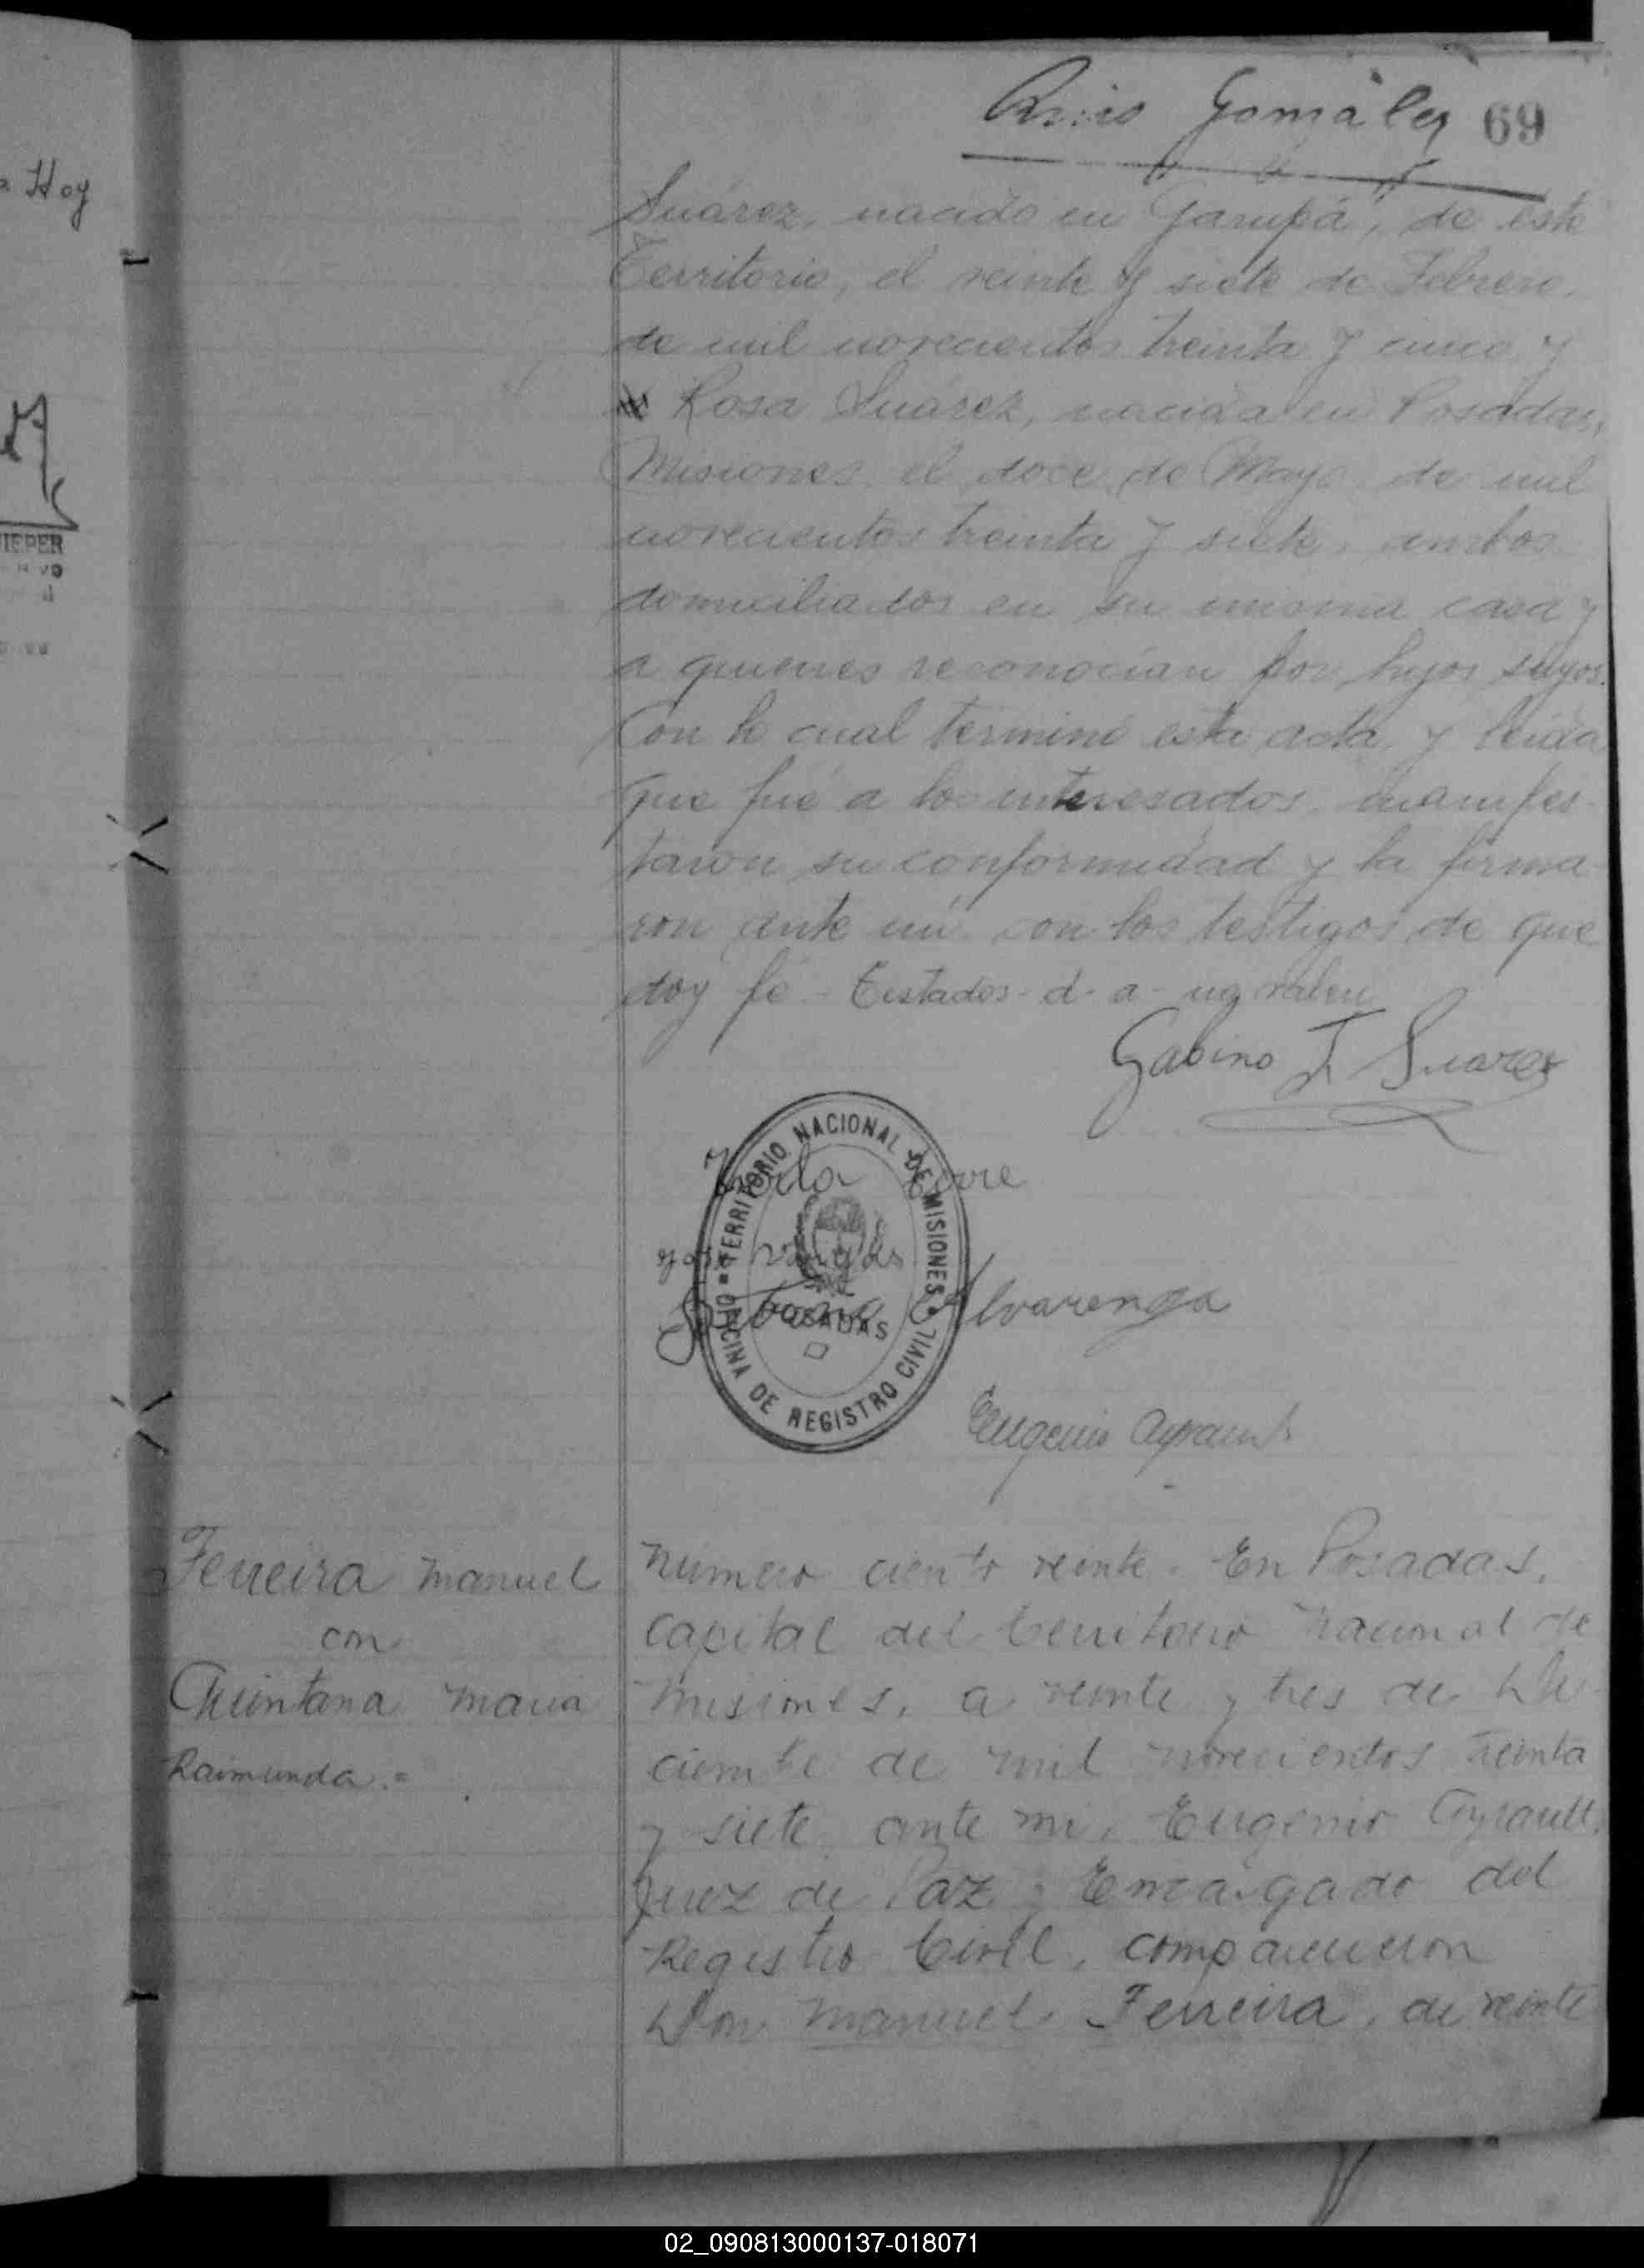 Hoy
IEPER
González 69
Suárez, nacido en Garupá, de este
Territorio, el veinte y siete de Febrero
de mil novecientos treinta y cinco y
Rosa Suárez, nacida en Posadas,
Misiones el doce de Mayo de mil
novecientos treinta y siete, ambos
domiciliados en su misma casa y
a quienes reconocían por hijos suyos.
Con lo cual terminó esta acta y leída
que fué a los interesados, manifes-
taron su conformidad y la firma
ron ante mí con los testigos de que
doy fé - Testados - d - a - no valen
Gabino J. Suarez
TERRITORIO NACIONAL DE MISIONES
OFICINA DE REGISTRO CIVIL
POSADAS
Alvarenga
Eugenio Ayrault
Ferreira Manuel
con
Quintana Maria
Raimunda.=
Número ciento veinte. En Posadas,
Capital del Territorio Nacional de
Misiones, a veinte y tres de Di-
ciembre de mil novecientos treinta
y siete, ante mi, Eugenio Ayrault,
Juez de Paz y Encargado del
Registro Civil, comparecieron
Don Manuel Ferreira, de veinte
02_090813000137-018071